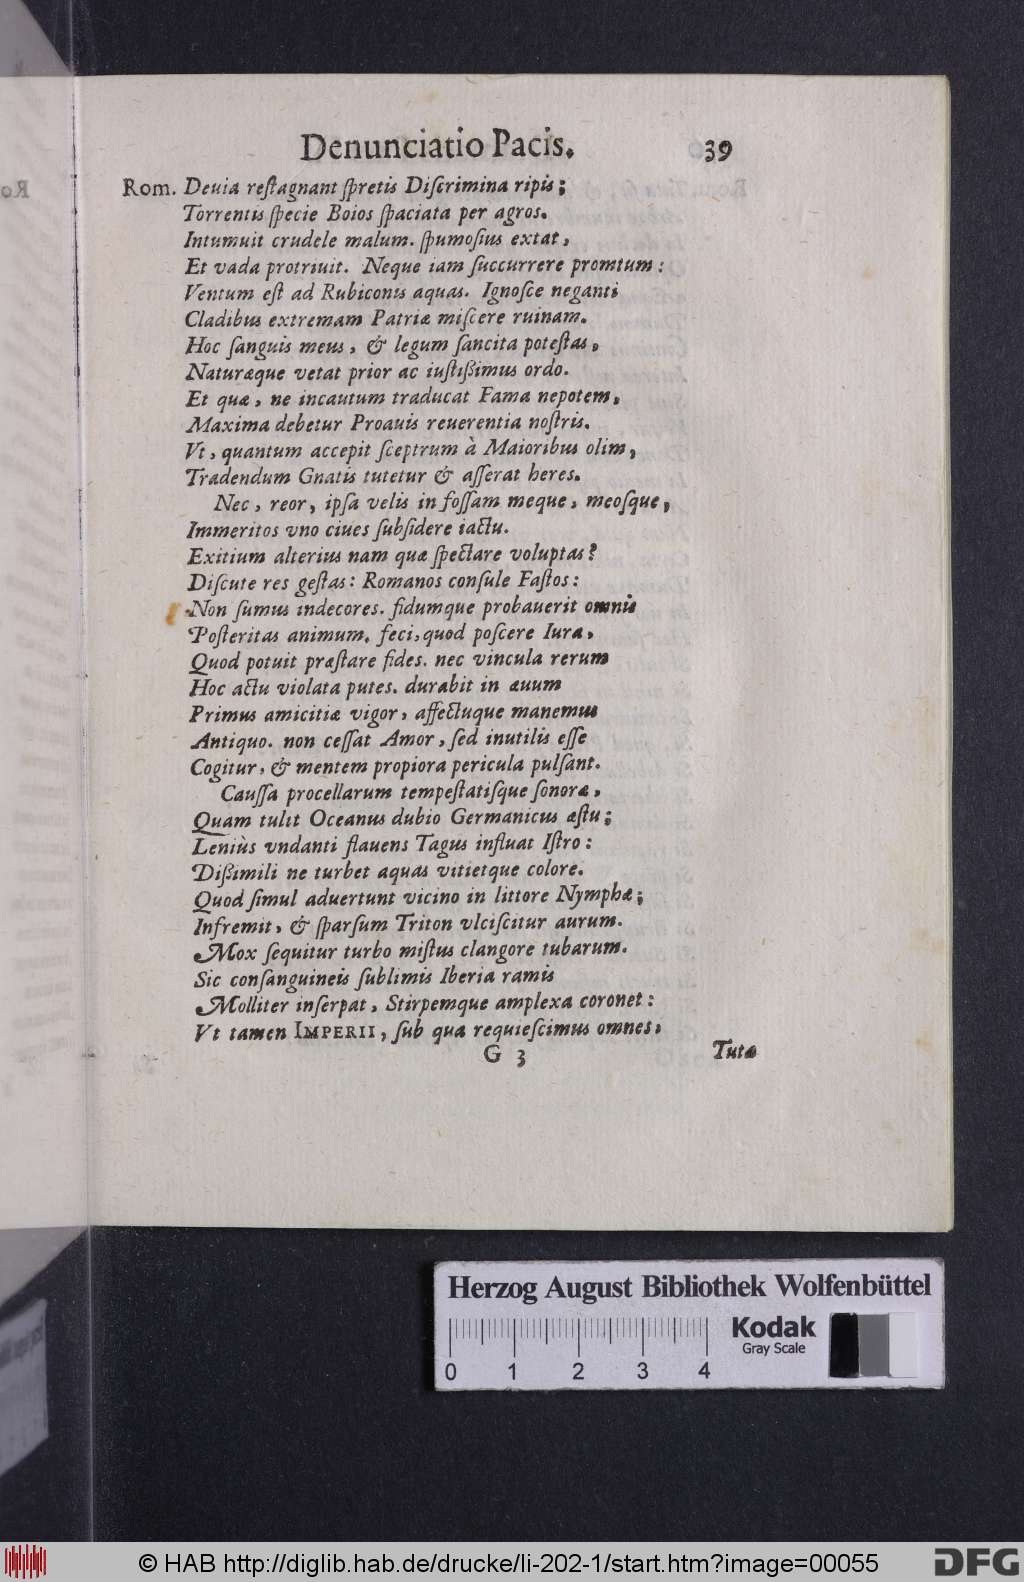 Denunciatio Pacis. 39
Rom. Deuia reſtagnant ſpretis Diſcrimina ripis;
Torrentis ſpecie Boios ſpaciata per agros.
Intumuit crudele malum. ſpumoſius extat,
Et vada protriuit. Neque iam ſuccurrere promtum:
Ventum eſt ad Rubiconis aquas. Ignoſce neganti
Cladibus extremam Patriæ miſcere ruinam.
Hoc ſanguis meus, & legum ſancita poteſtas,
Naturæque vetat prior ac iuſtißimus ordo.
Et quæ, ne incautum traducat Fama nepotem,
Maxima debetur Proauis reuerentia noſtris.
Vt, quantum accepit ſceptrum à Maioribus olim,
Tradendum Gnatis tutetur & aſſerat heres.
Nec, reor, ipſa velis in foſſam meque, meoſque,
Immeritos vno ciues ſubſidere iactu.
Exitium alterius nam quæ ſpectare voluptas?
Diſcute res geſtas: Romanos conſule Faſtos:
Non ſumus indecores. fidumque probauerit omnis
Poſteritas animum. feci, quod poſcere Iura,
Quod potuit præſtare fides. nec vincula rerum
Hoc actu violata putes. durabit in æuum
Primus amicitiæ vigor, affectuque manemus
Antiquo. non ceſſat Amor, ſed inutilis eſſe
Cogitur, & mentem propiora pericula pulſant.
Cauſſa procellarum tempeſtatiſque ſonoræ,
Quam tulit Oceanus dubio Germanicus æſtu;
Leniùs vndanti flauens Tagus influat Iſtro:
Dißimili ne turbet aquas vitietque colore.
Quod ſimul aduertunt vicino in littore Nymphæ;
Infremit, & ſparſum Triton vlciſcitur aurum.
Mox ſequitur turbo miſtus clangore tubarum.
Sic conſanguineis ſublimis Iberia ramis
Molliter inſerpat, Stirpemque amplexa coronet:
Vt tamen IMPERII, ſub qua requieſcimus omnes,
G 3 Tutæ
Herzog August Bibliothek Wolfenbüttel
0 1 2 3 4
Kodak
Gray Scale
© HAB http://diglib.hab.de/drucke/li-202-1/start.htm?image=00055
DFG